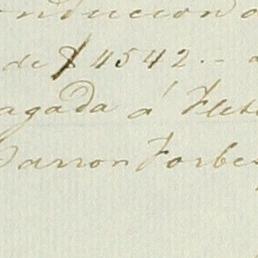 onducion
de $ 4542.-
agada á Flet
Barron Forbe